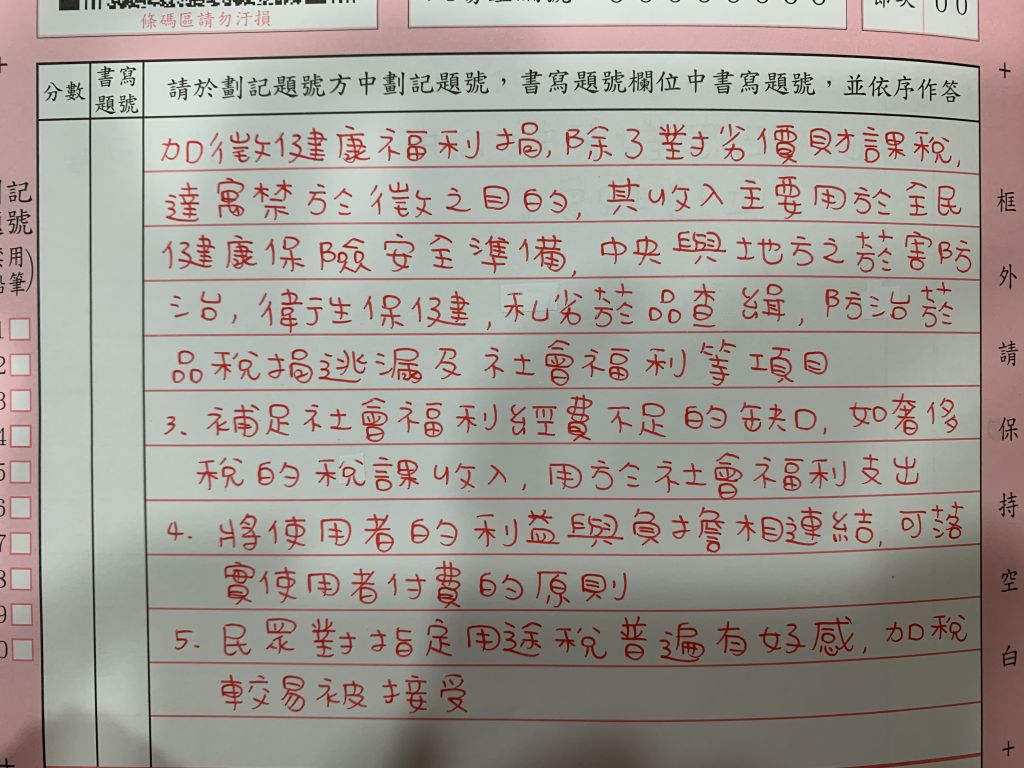 條碼區請勿汙損
分數
書寫題號
請於劃記題號方中劃記題號，書寫題號欄位中書寫題號，並依序作答
加徵健康福利捐，除了對劣價財課稅，
達寓禁於徵之目的，其收入主要用於全民
健康保險安全準備，中央與地方之菸害防
治，衛生保健，私劣菸品查緝，防治菸
品稅捐逃漏及社會福利等項目
3. 補足社會福利經費不足的缺口，如奢侈
稅的稅課收入，用於社會福利支出
4. 將使用者的利益與負擔相連結，可落
實使用者付費的原則
5. 民眾對指定用途稅普遍有好感，加稅
較易被接受
框外請保持空白